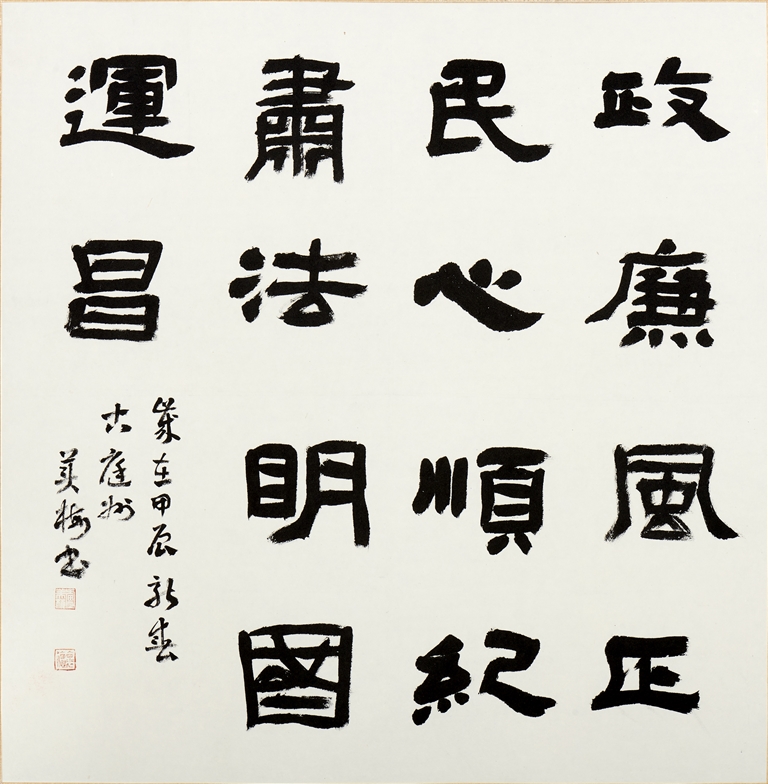 政廉風正
民心順紀
肅法明國
運昌
歲在甲辰新春
古庭州
英梅書